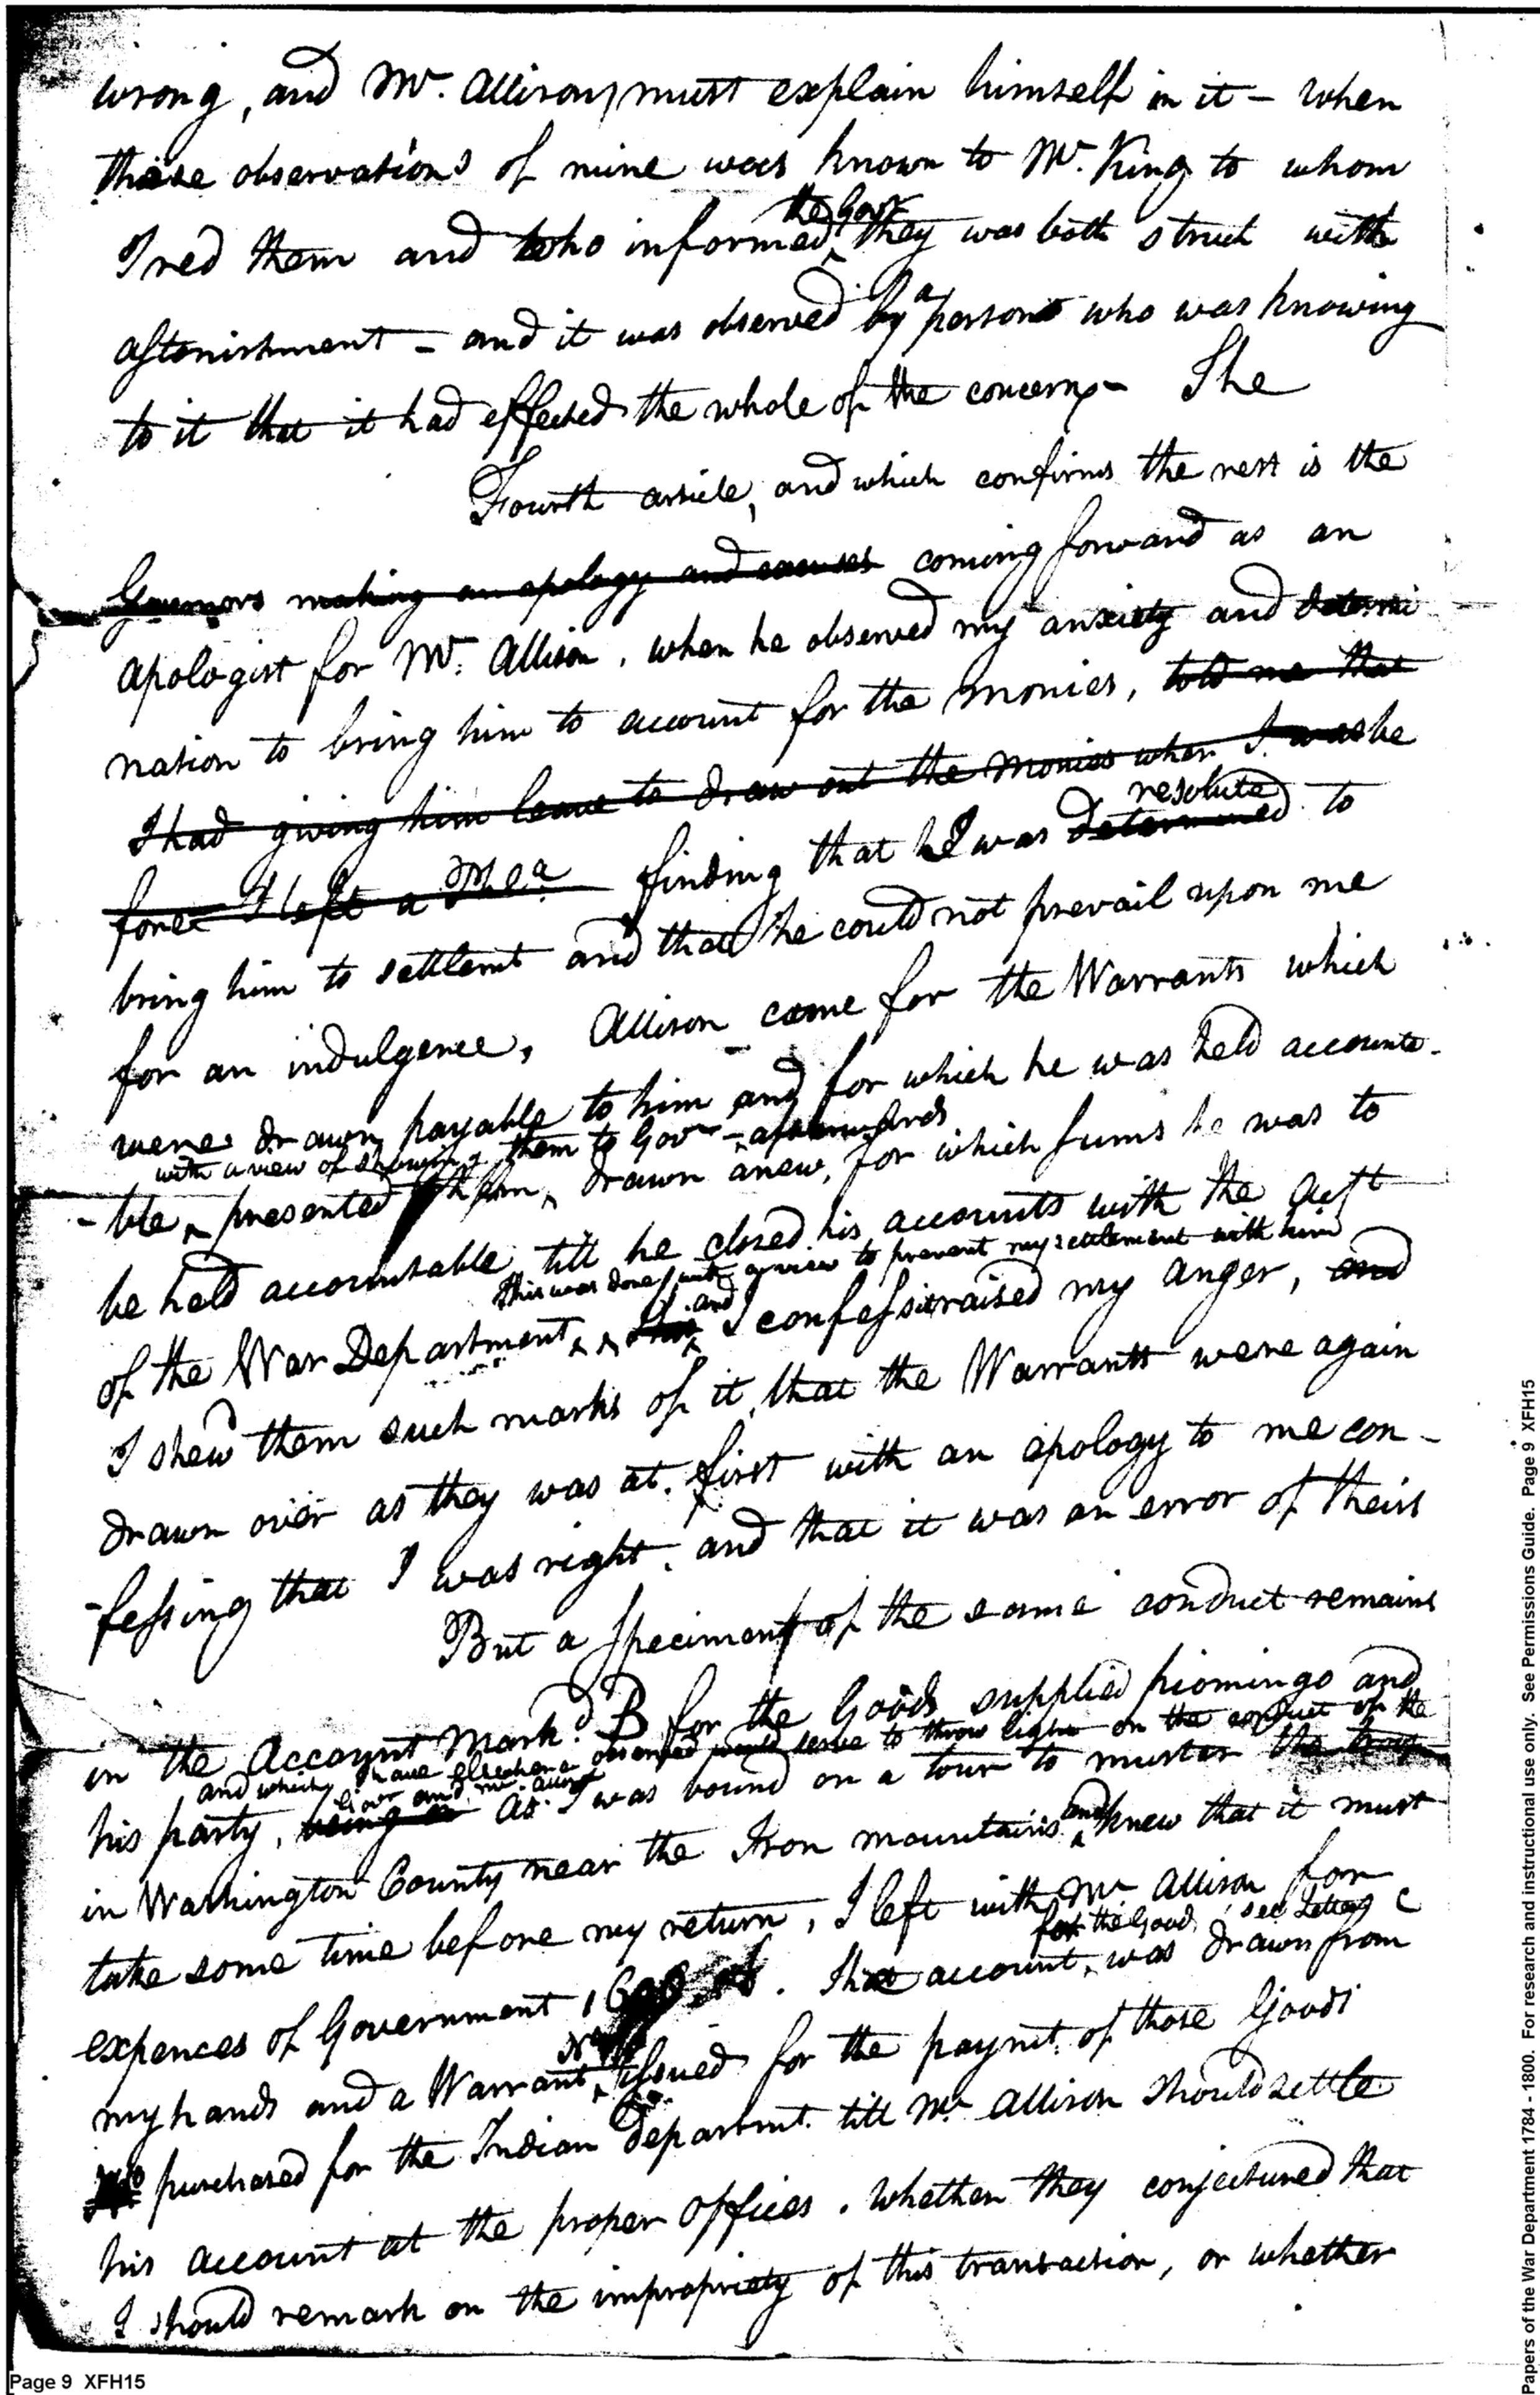 wrong, and Mr. Allison must explain himself in it - when
these observations of mine was known to Mr. King to whom
the Govr
I red them and who informed they was both struck with
astonishment - and it was observed by a person who was knowing
to it that it had effected the whole of the concern - The
Fourth article, and which confirms the rest is the
Governors making an apology and excuses coming forward as an
apologist for Mr. Allison, when he observed my anxiety and determi
nation to bring him to account for the monies, told me that
I had giving him leave to draw out the monies when I was be
resolute
fore I left a finding that I was determined to
bring him to settlemt and that he could not prevail upon me
for an indulgence, Allison came for the Warrants which
were drawn payable to him and for which he was held accounta-
with a view of showing them to Govr - afterwards
-ble, presented them, drawn anew, for which sums he was to
be held accountable till he closed his accounts with the Acct
this was done with a view to prevent my settlement with him
of the War Department, and I confess it raised my anger, and
I shew'd them such marks of it, that the Warrants were again
drawn over as they was at first with an apology to me con-
-fessing that I was right, and that it was an error of theirs
But a specimen of the same conduct remains
in the Account Mark'd B for the Goods supplied piomingo and
and which I have elsewhere observed would serve to throw light on the conduct of the
Govr and Mr. Allison
his party, being a As I was bound on a tour to muster the troops
in Washington County near the Iron mountains and knew that it must
take some time before my return, I left with Mr Allison for
for the Goods see Letter C
expences of Government. The account, was drawn from
my hands and a Warrant issued for the paymt. of those Goods
purchased for the Indian Departmt. till Mr Allison should settle
his account at the proper offices. Whether they conjectured that
I should remark on the impropriety of this transaction, or whether
Page 9 XFH15
Papers of the War Department 1784 - 1800. For research and instructional use only. See Permissions Guide. Page 9 XFH15